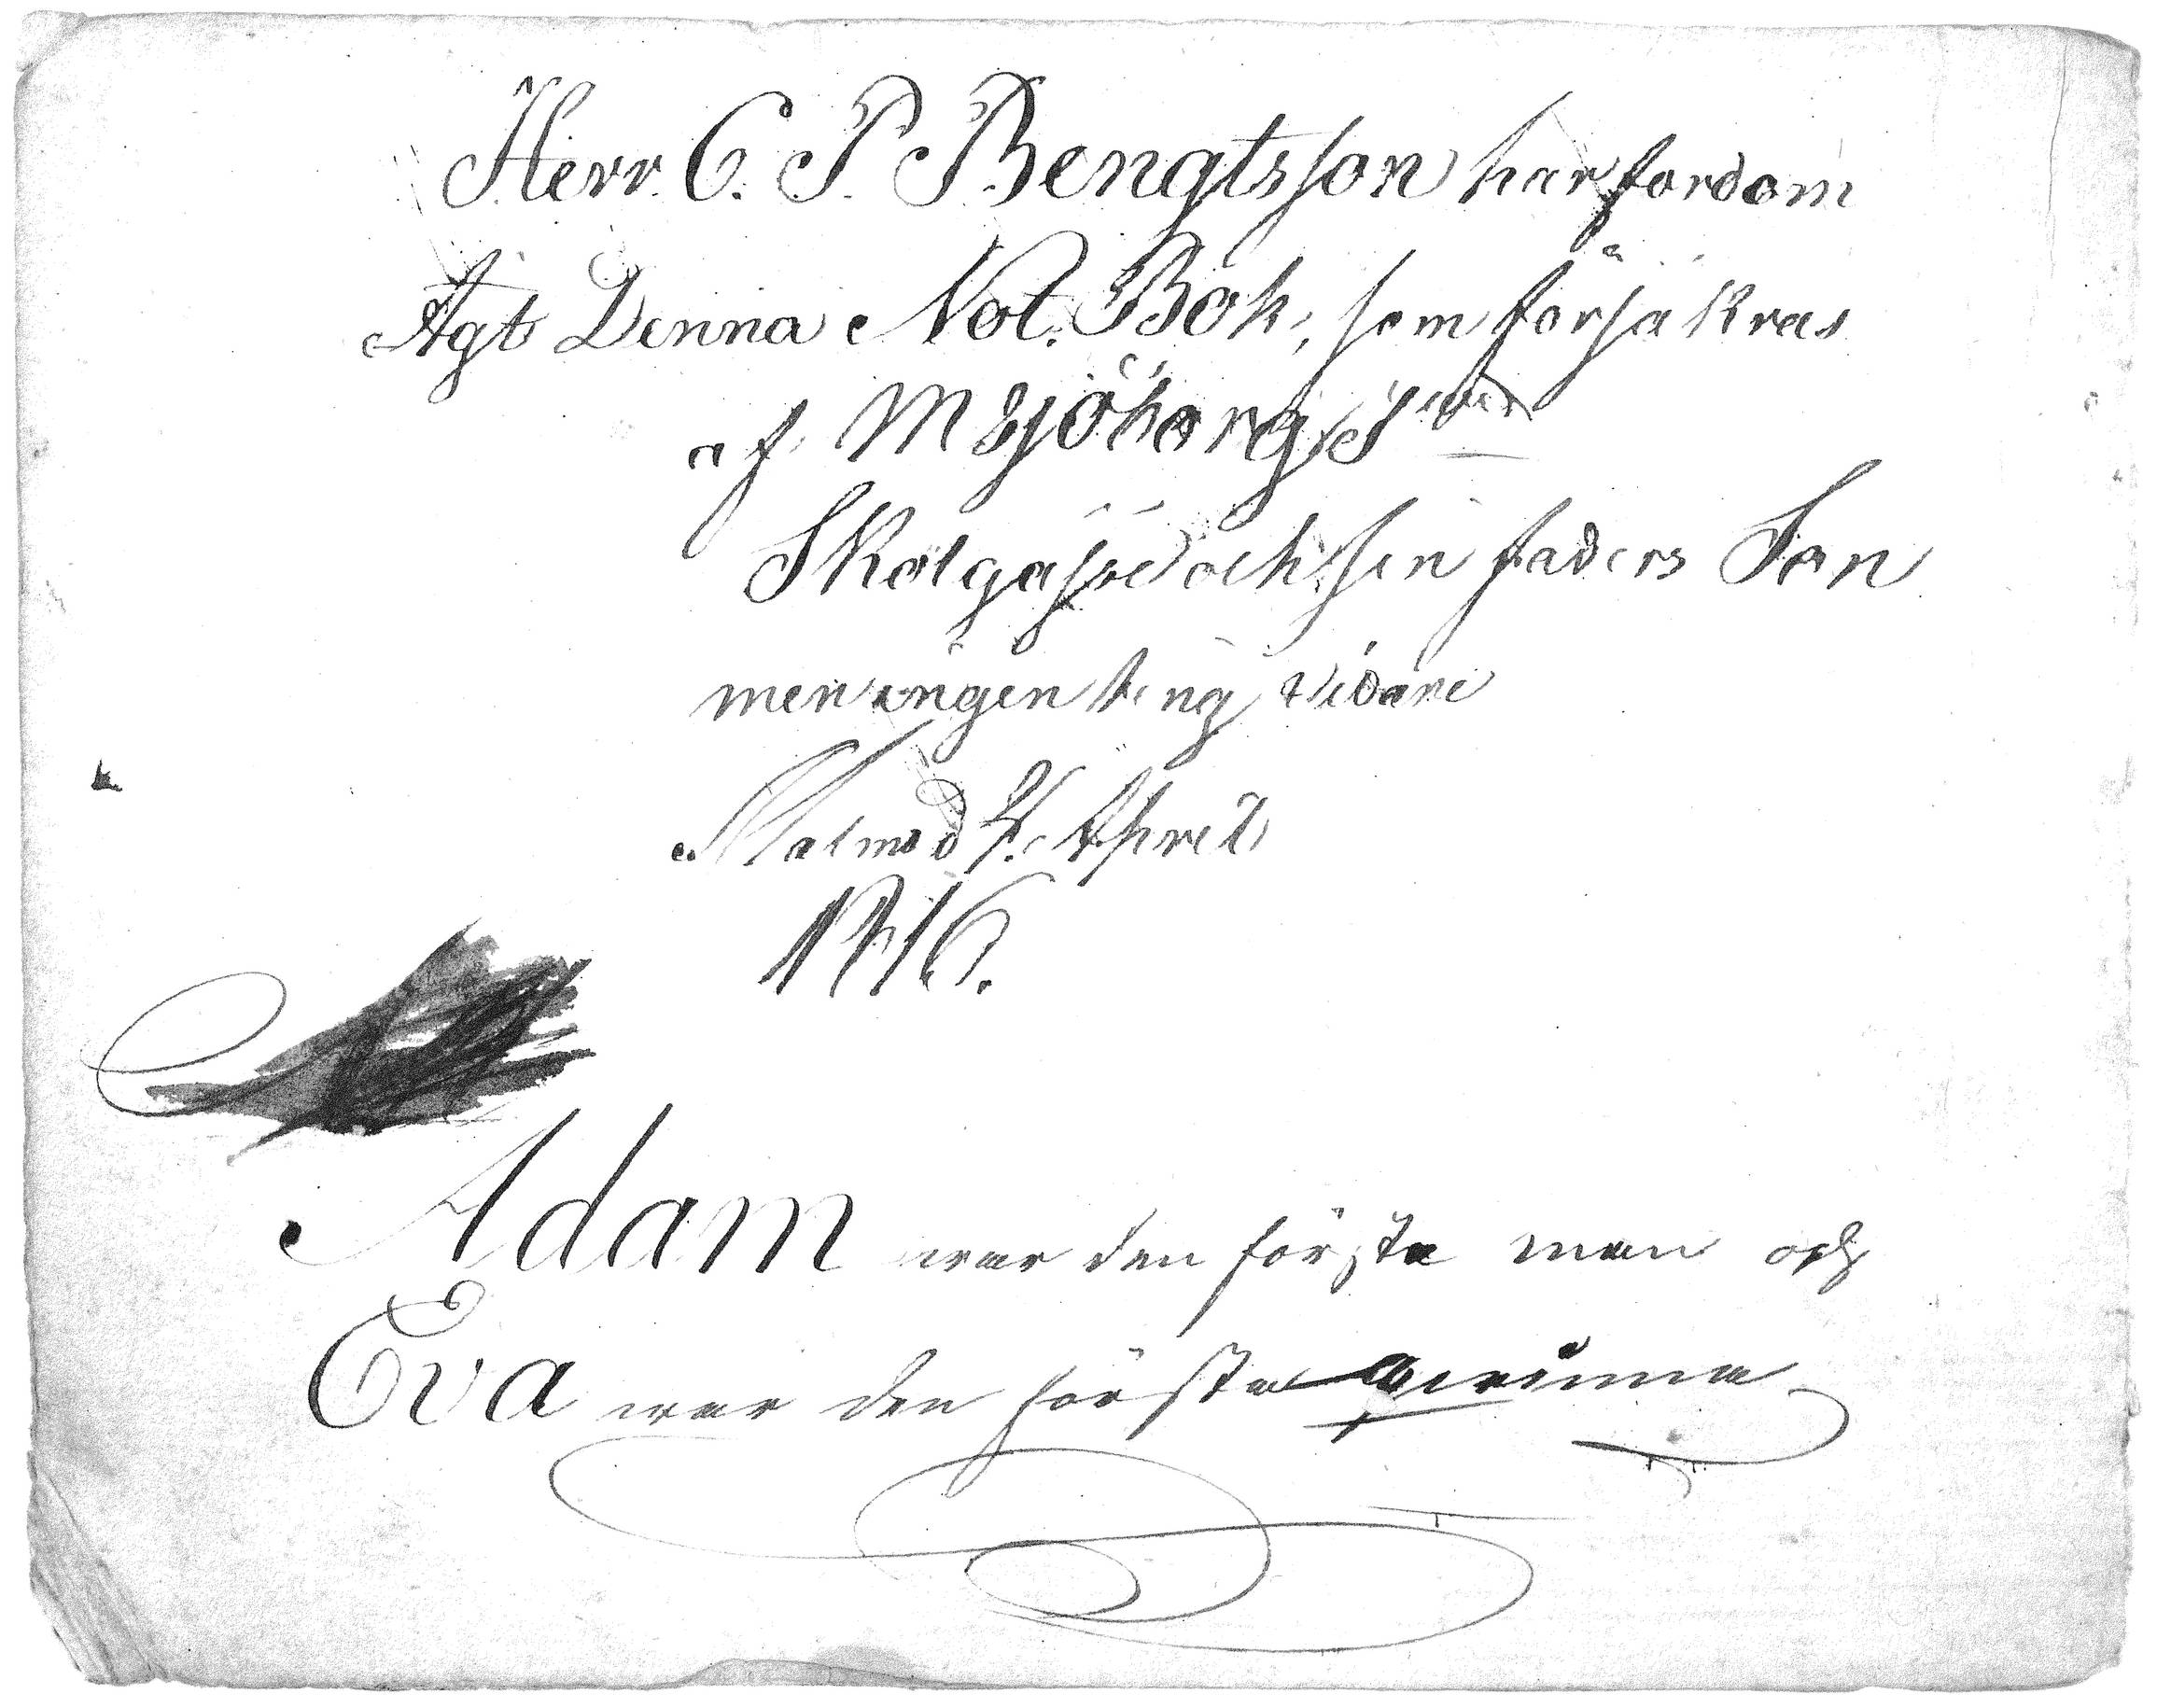 Herr C. P. Bengtsson har fordom
Ägt Denna Not. Bok, som försäkras
af M Sjöborg
Skolgåsse och sin faders Son
men ingen ting vidare
Malmö d 4. April
1816.
Adam war den första man och
Eva war den första qwinna